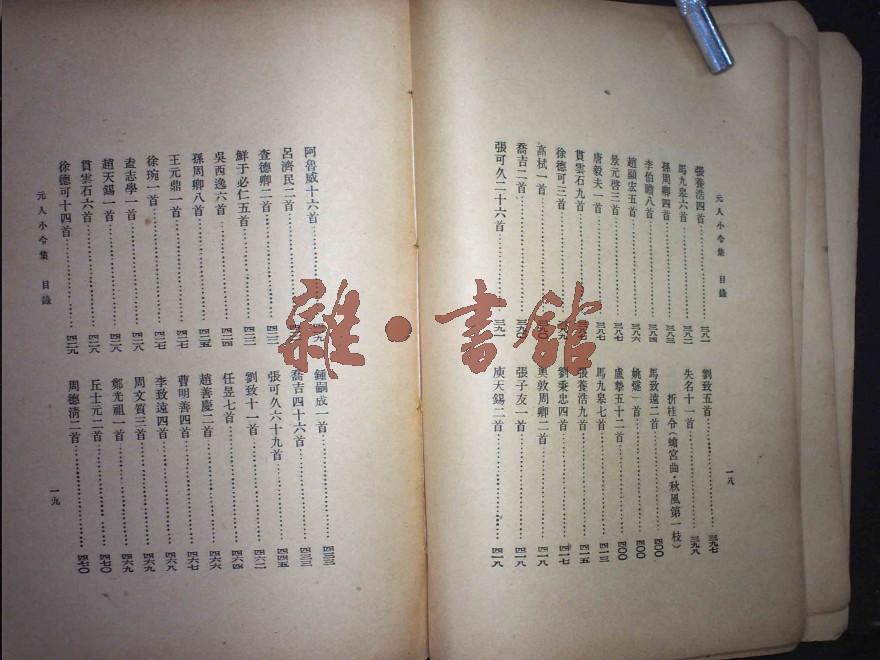 元人小令集 目錄 一八
張養浩四首 三八一
馬九皋六首 三八二
孫周卿四首 三八四
李伯瞻八首 三八四
趙顯宏五首 三八六
景元啓三首 三八七
唐毅夫一首 三八七
貫雲石九首
徐德可三首
高栻一首
喬吉二首 三九〇
張可久二十六首 三九一
劉致五首 三九七
失名十一首 三九八
折桂令(蟾宮曲·秋風第一枝)
馬致遠二首 四〇〇
姚燧一首 四〇〇
盧摯五十二首 四〇〇
馬九皋七首 四一三
張養浩九首 四一五
劉秉忠四首 四一七
奧敦周卿二首 四一八
張子友一首 四一八
庾天錫二首 四一八
阿魯威十六首
呂濟民二首
查德卿二首
鮮于必仁五首
吳西逸六首 四二四
孫周卿八首 四二五
王元鼎一首 四二七
徐琬一首 四二七
盍志學一首 四二八
趙天錫一首 四二八
貫雲石六首 四二八
徐德可十四首 四二九
鍾嗣成一首 四三三
喬吉四十六首 四三三
張可久六十九首 四四五
劉致十一首 四六二
任昱七首 四六四
趙善慶二首 四六六
曹明善四首 四六七
李致遠四首 四六八
周文質三首 四六九
鄭光祖一首 四六九
丘士元二首 四七〇
周德清二首 四七〇
元人小令集 目錄 一九
雜·書館